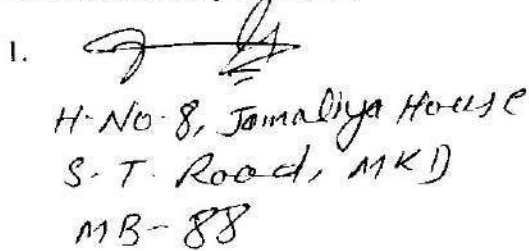 1.
H-No-8, Jamaliya House
S. T. Road, MKD
MB-88